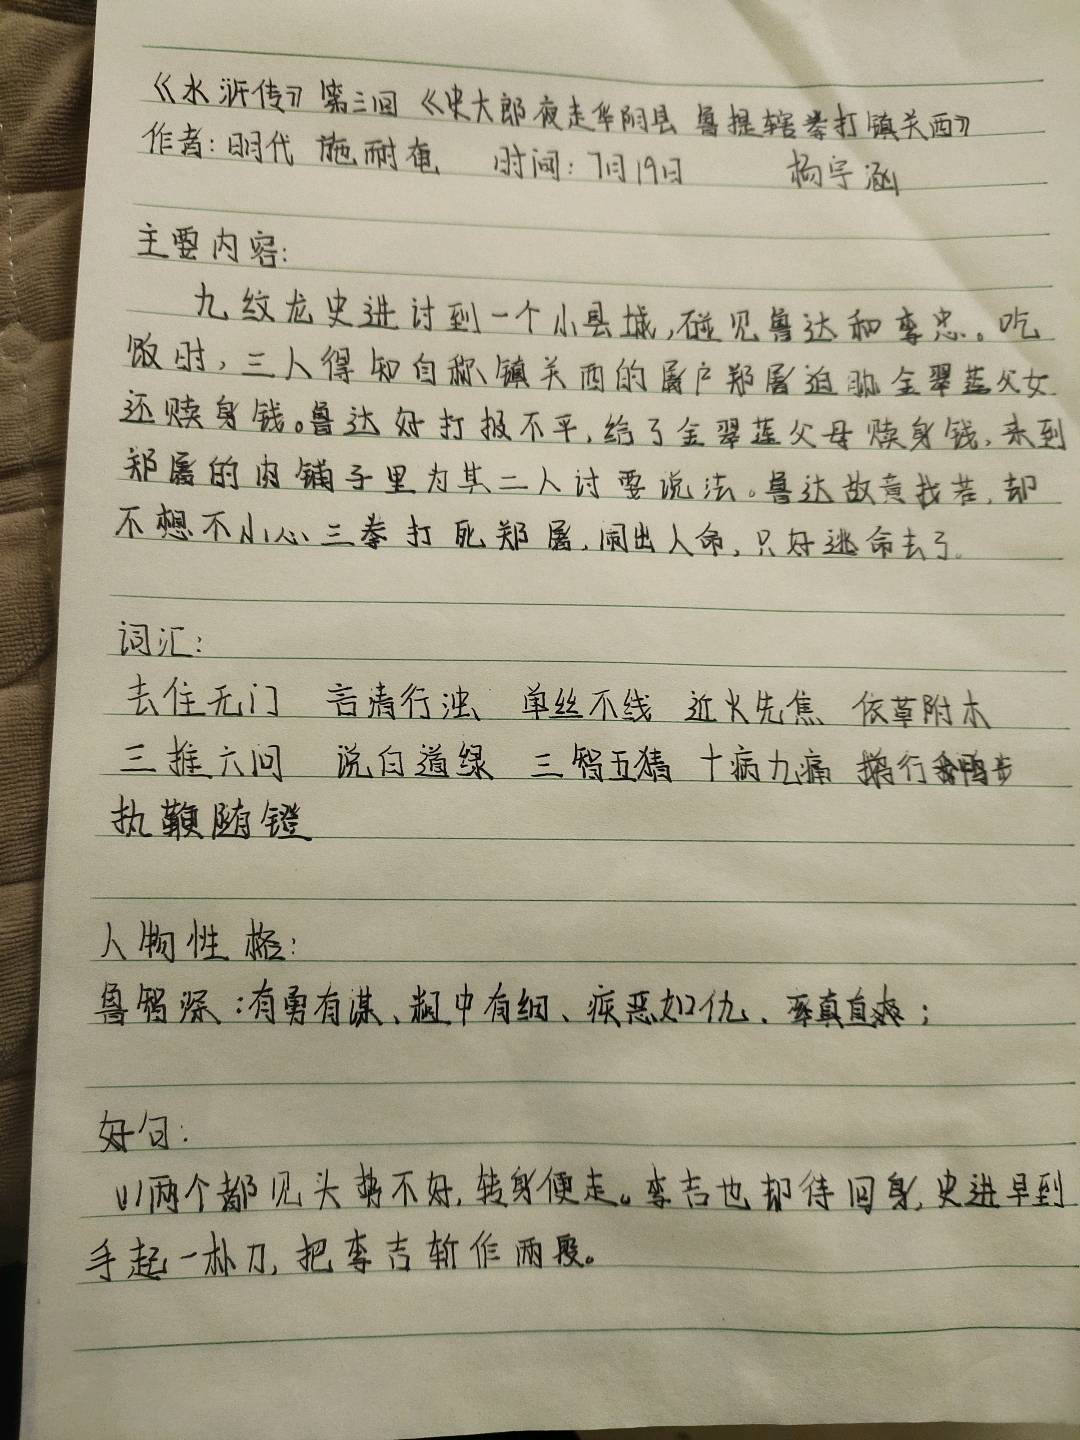 《水浒传》第三回《史大郎夜走华阴县 鲁提辖拳打镇关西》
作者:明代 施耐庵 时间:7月19日 杨宇涵
主要内容:
九纹龙史进讨到一个小县城,碰见鲁达和李忠。吃
饭时,三人得知自称镇关西的屠户郑屠迫胁金翠莲父女
还赎身钱。鲁达好打报不平,给了金翠莲父母赎身钱,来到
郑屠的肉铺子里为其二人讨要说法。鲁达故意找茬,却
不想不小心三拳打死郑屠,闹出人命,只好逃命去了。
词汇:
去住无门 言清行浊 单丝不线 近火先焦 依草附木
三推六问 说白道绿 三智五猜 十病九痛 鹅行鸭步
执鞭随镫
人物性格:
鲁智深:有勇有谋、粗中有细、疾恶如仇、率真直爽;
好句:
(1)两个都见头势不好,转身便走。李吉也却待回身,史进早到
手起一朴刀,把李吉斩作两段。